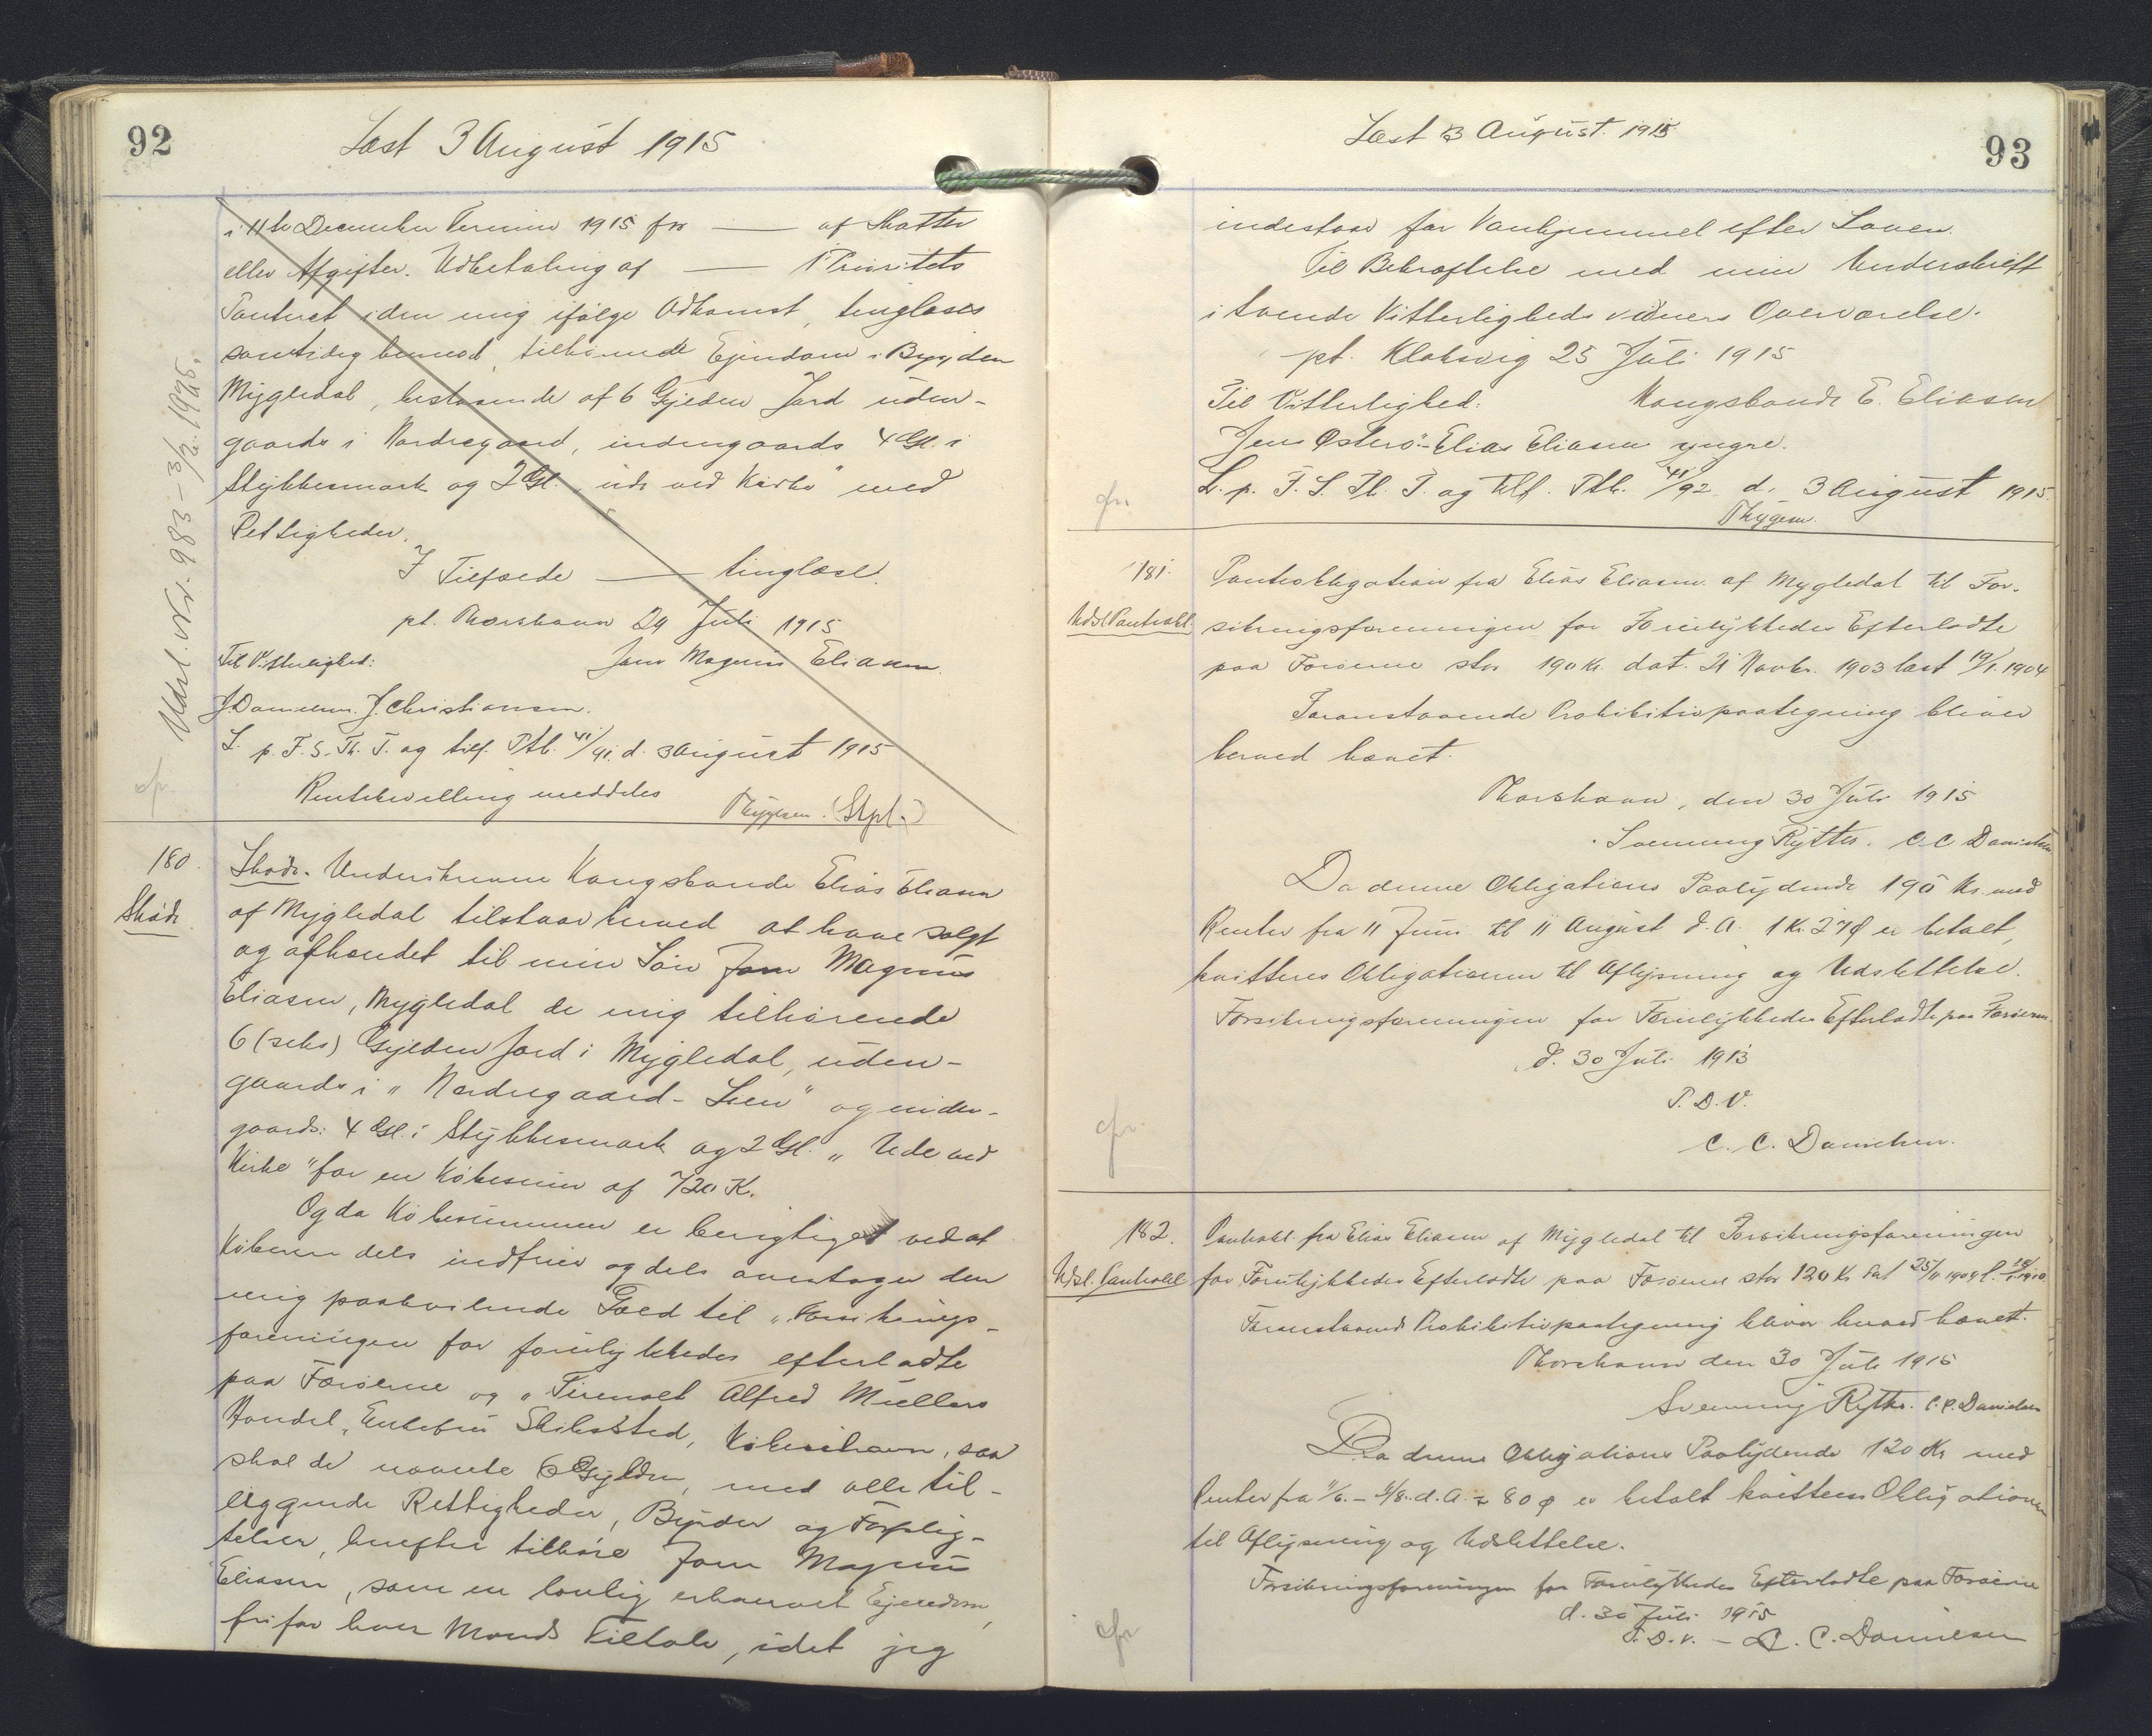 92
Læst 3 August 1915
i 11te December Termin 1915 fra — af Skatter
eller Afgifter. Udbetaling af — 1 Prioritets
Panteret i den mig ifølge Adkomst, tinglæses
samtidig hermed, tilhørende Ejendom i Bygden
Mygledal, bestaaende af 6 Gylden Jord uden-
gaards i Nordregaard, indengaards 4 Gl. i
Stykkesmark og 2 Gl. "ude ved Kirke" med
Rettigheder.
I Tilfælde — tinglæst.
pt. Thorshavn 29 Juli 1915
Til Vitterlighed: Joen Magnus Eliasen.
J Danielsen. J. Christiansen.
L. p. F. S. Th. T. og tilf. Ptb. 41/91. d. 3 August 1915
Rentebevilling meddeles Thygesen. (Stpl.)
Udsl. Nr. 983 - 3/12. 1925.
cfr
180.
Skøde
Skøde. Underskrevne Kongsbonde Elias Eliasen
af Mygledal tilstaar herved at have solgt
og afhændet til min Søn Joen Magnus
Eliasen, Mygledal de mig tilhørende
6 (seks) Gylden Jord i Mygledal, uden-
gaards i "Nordregaard-Lien" og inden-
gaards: 4 Gl. i Stykkesmark og 2 Gl. "Ude ved
Kirke" for en Købesum af 720 K.
Og da Købesummen er berigtiget ved at
Køberen dels indfrier og dels overtager den
mig paahvilende Gæld til "Forsikrings-
foreningen for forulykkedes efterladte
paa Færøerne og "Firmaet Alfred Müllers
Handel, Enkefru Skibsted, København, saa
skal de nævnte 6 Gylden, med alle til-
liggende Rettigheder, Byrder og Forplig-
telser, herefter tilhøre Joen Magnus
Eliasen, som en lovlig erhvervet Ejendom,
fri for hver Mands Tiltale, idet jeg
93
Læst 3 August. 1915
indestaar for Vanhjemmel efter Loven.
Til Bekræftelse med min Underskrift
i tvende Vitterlighedsvidners Overværelse.
pt. Klaksvig 25 Juli 1915
Til Vitterlighed: Kongsbonde E. Eliasen
Jens Østerø - Elias Eliasen yngre.
L. p. F. S. Th. T. og tilf. Ptb. 41/92 d. 3 August 1915.
Thygesen.
cfr
181.
Udsl Pantobl.
Pantobligation fra Elias Eliasen af Mygledal til For-
sikringsforeningen for Forulykkedes Efterladte
paa Færøerne stor 190 Kr. dat. 21 Novbr. 1903 læst 19/1. 1904
Foranstaaende Prohibitivpaategning bliver
herved hævet.
Thorshavn, den 30 Juli 1915
Svenning Rytter. C. C Danielsen
Da denne Obligations Paalydende 190 Kr. med
Renter fra 11 Juni til 11 August d. A. 1 Kr. 27 Ø er betalt,
kvitteres Obligationen til Aflysning og Udslettelse.
Forsikringsforeningen for Forulykkedes Efterladte paa Færøerne.
d. 30 Juli 1915
P. D. V.
C. C. Danielsen.
cfr.
182.
Udsl. Pantobl
Pantobl. fra Elias Eliasen af Mygledal til Forsikringsforeningen
for Forulykkedes Efterladte paa Færøerne stor 120 Kr dat 25/11 1909 l. 18/1. 1910
Foranstaaende Prohibitivpaategning bliver herved hævet.
Thorshavn den 30 Juli 1915
Svenning Rytter. C. C. Danielsen
Da denne Obligations Paalydende 120 Kr med
Renter fra 11/6. - 11/8. d. A. = 80 Ø er betalt kvitteres Obligationen
til Aflysning og Udslettelse.
Forsikringsforeningen for Forulykkedes Efterladte paa Færøerne
d. 30 Juli 1915
P. D. V. - C. C. Danielsen
cfr